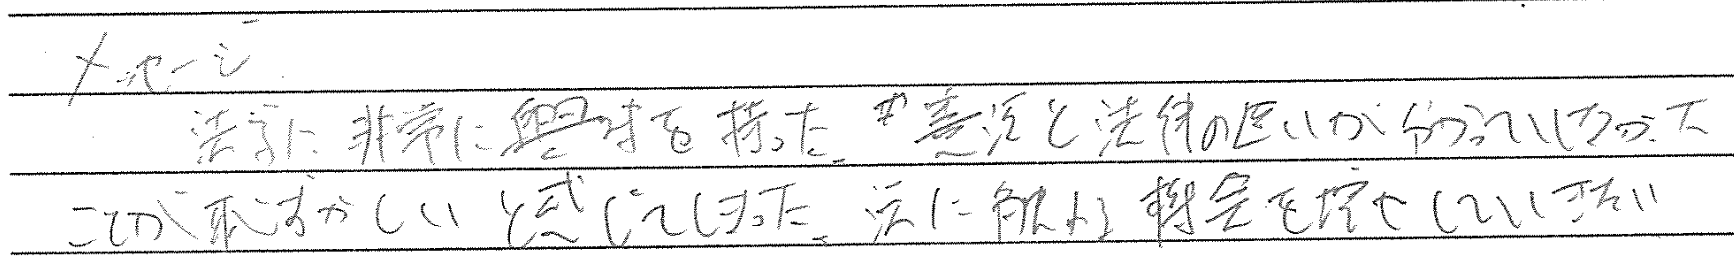 メッセージ
法学に非常に興味を持った。憲法と法律の違いが分かっていなかった
ことが恥ずかしいと感じてしまった。法に触れる機会を増やしていきたい